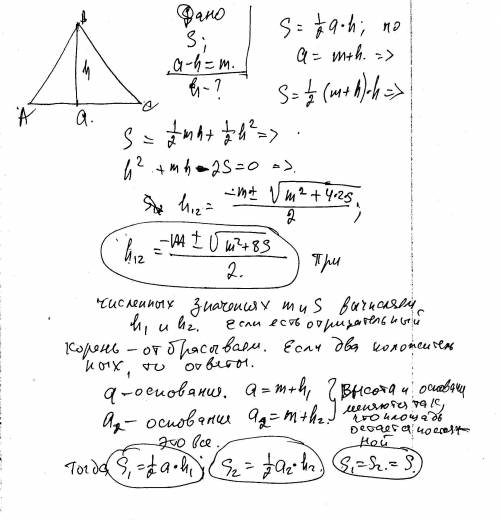 B
h
A
a.
C
Дано
S;
a-h=m.
h-?
S = ½ a·h; но
a = m+h. =>
S = ½ (m+h)·h =>
S = ½ mh + ½ h² =>
h² + mh - 2S = 0 =>
h₁₂ = (-m ± √(m² + 4·2S)) / 2 ;
h₁₂ = (-m ± √(m²+8S)) / 2. при
численных значениях m и S вычисляем
h₁ и h₂. Если есть отрицательный
корень - отбрасываем. Если два положитель
ных, то ответы.
a - основания. a = m+h₁
a₂ - основания a₂ = m+h₂.
это все.
Высота и основани
меняются так,
что площадь
остается постоян
ной
Тогда S₁ = ½ a·h₁; S₂ = ½ a₂·h₂ S₁ = S₂ = S.